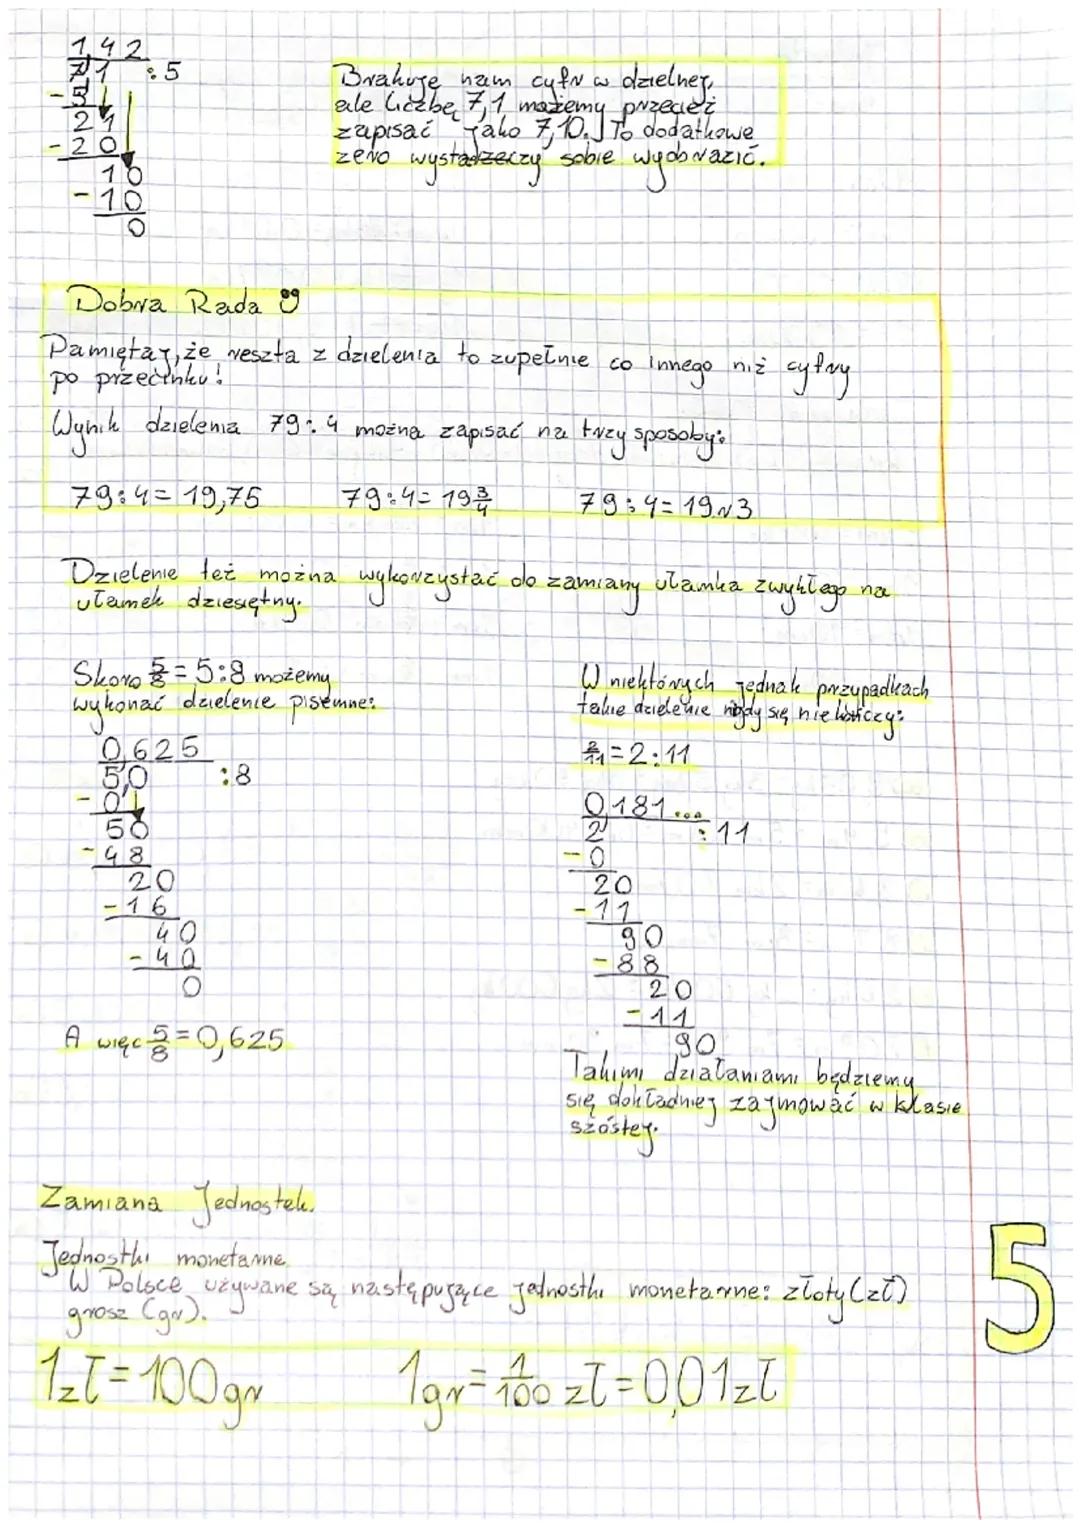 1,42
7,1 :5
-5
21
-20
10
-10
0
Brakuje nam cyfr w dzielnej,
ale liczbę 7,1 możemy przecież
zapisać jako 7,10. To dodatkowe
zero wystarczy sobie wyobrazić.
Dobra Rada
Pamiętaj, że reszta z dzielenia to zupełnie co innego niż cyfry
po przecinku!
Wynik dzielenia 79:4 można zapisać na trzy sposoby:
79:4=19,75 79:4=19 3/4 79:4=19 r 3
Dzielenie też można wykorzystać do zamiany ułamka zwykłego na
ułamek dziesiętny.
Skoro 5/8=5:8 możemy
wykonać dzielenie pisemne:
0,625
5,0 :8
-0
50
-48
20
-16
40
-40
0
A więc 5/8=0,625
W niektórych jednak przypadkach
takie dzielenie nigdy się nie kończy:
2/11=2:11
0,181...
2 :11
-0
20
-11
90
-88
20
-11
90
Takimi działaniami będziemy
się dokładniej zajmować w klasie
szóstej.
Zamiana Jednostek.
Jednostki monetarne
W Polsce używane są następujące jednostki monetarne: złoty (zł)
grosz (gr).
1zł=100gr 1gr=1/100 zł=0,01zł
5